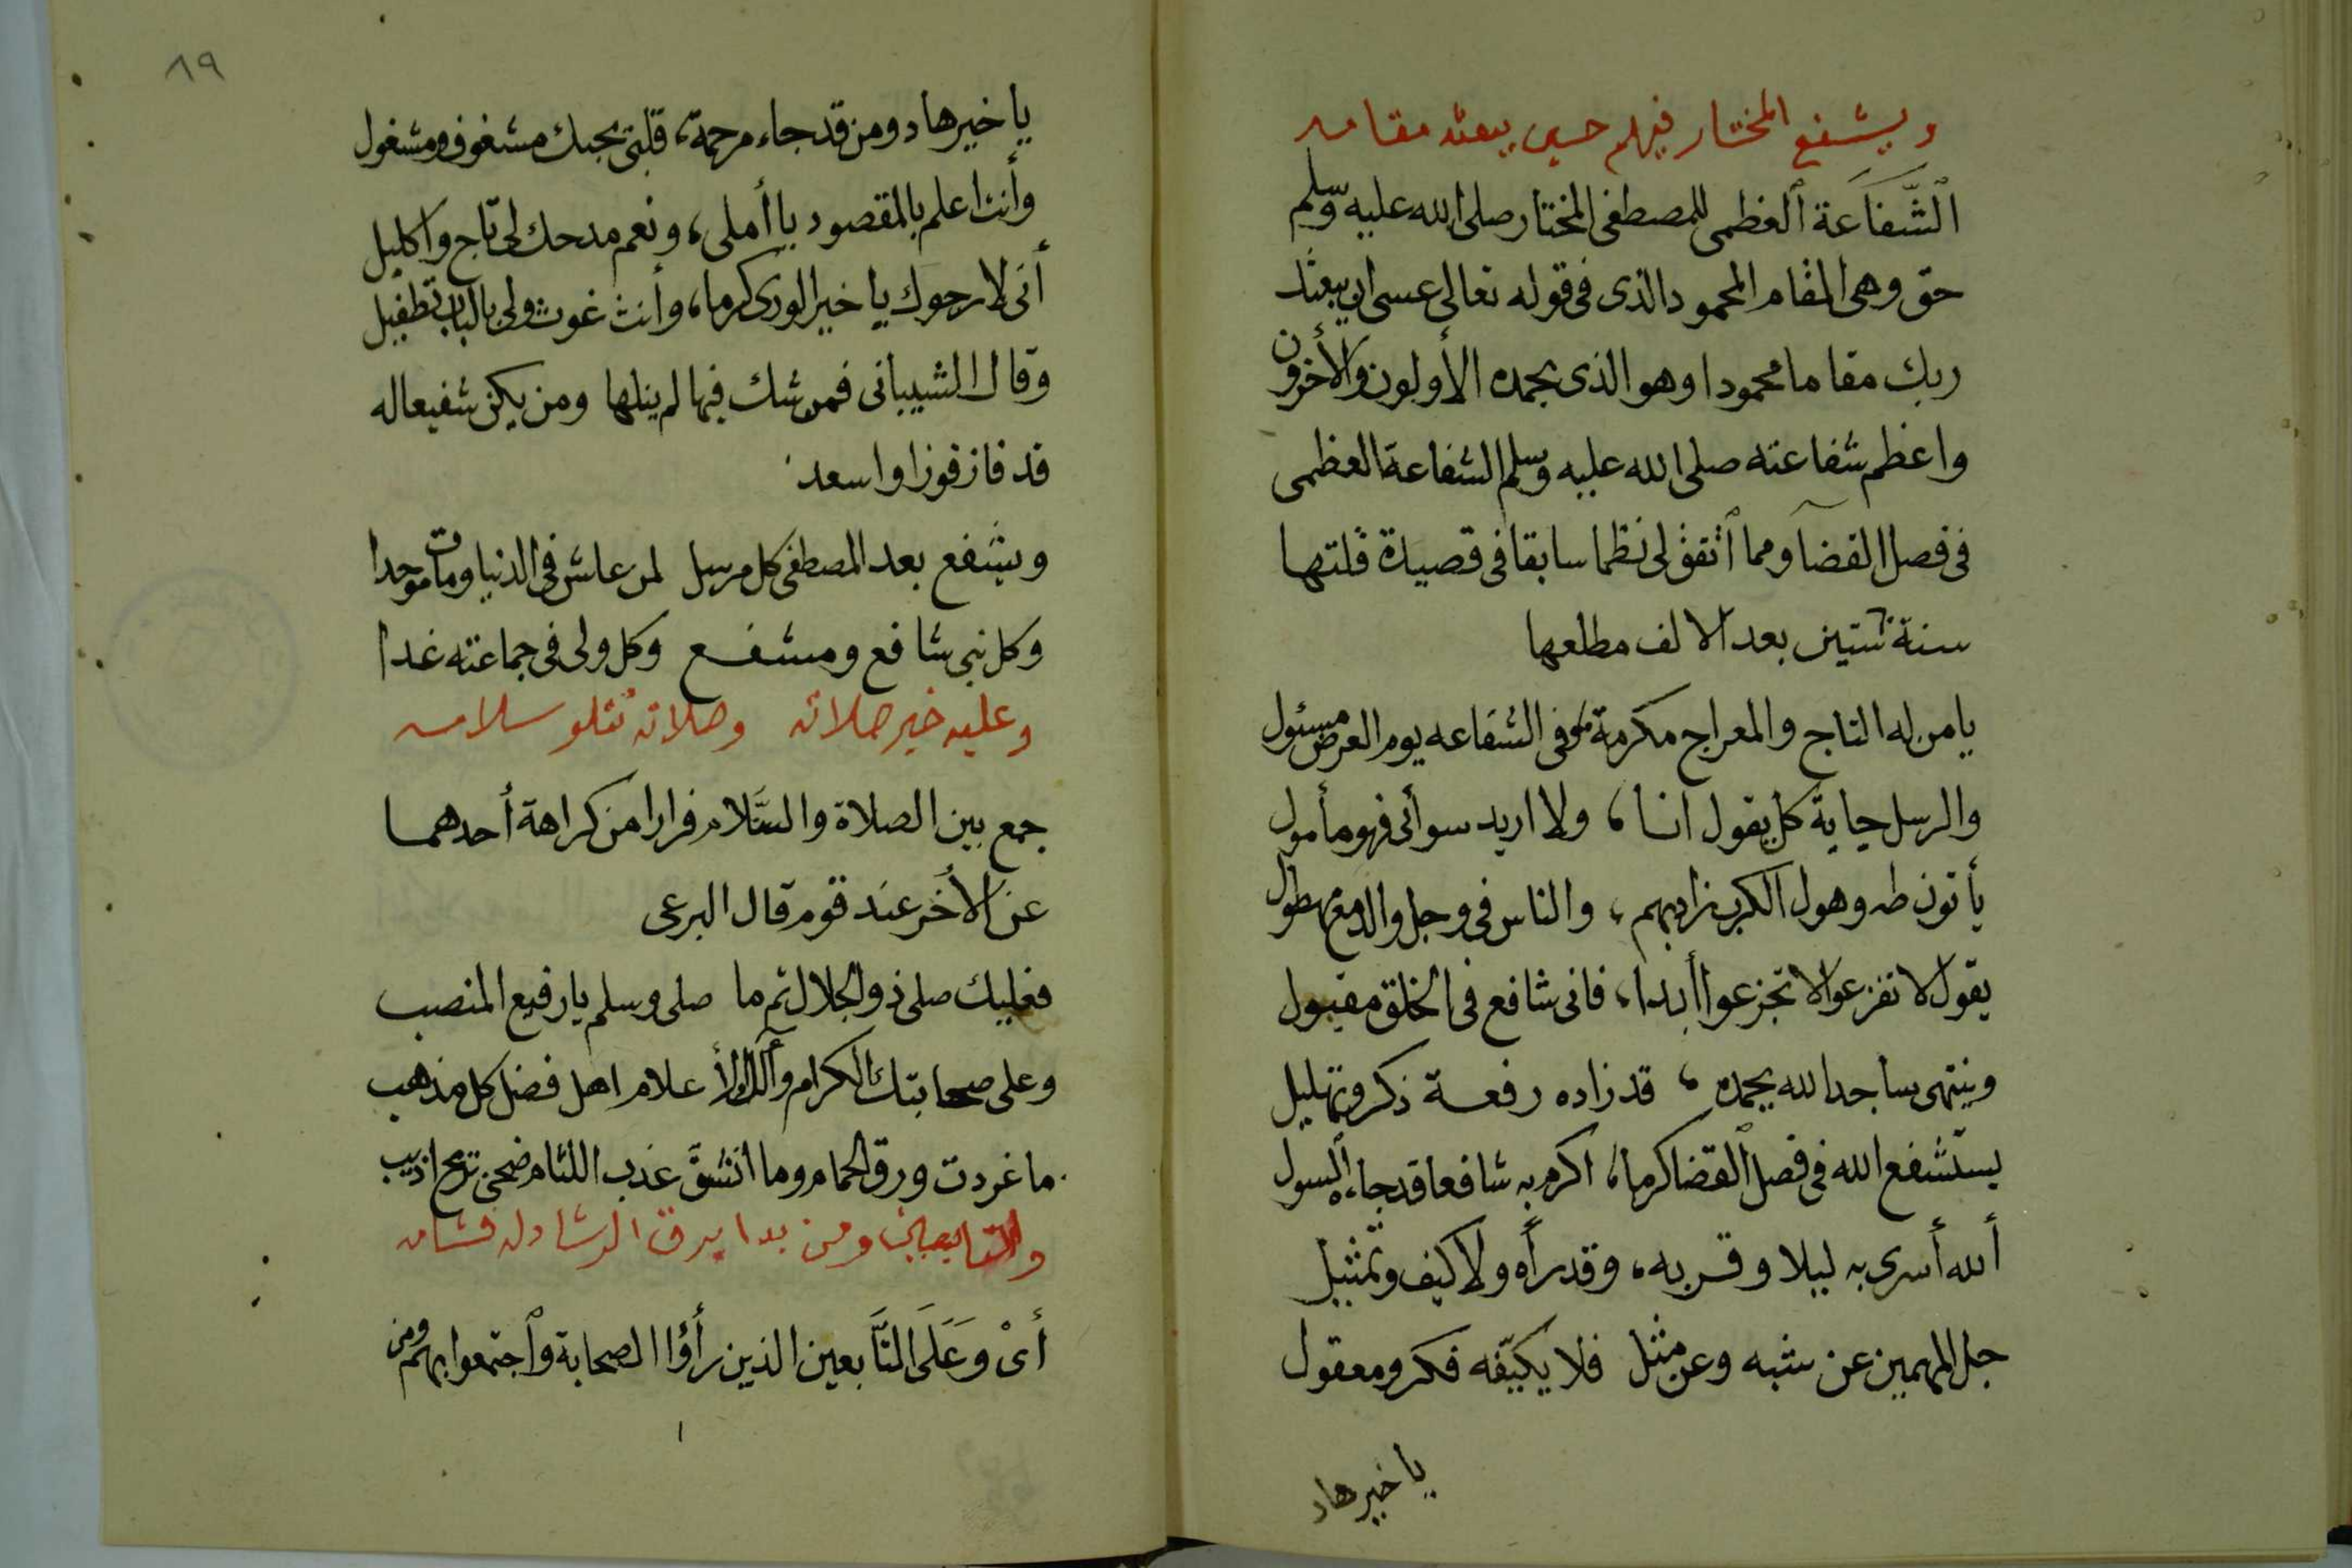 ويشفع المختار فيهم حين يبعثه مقامه
ٱلشَّفَاعة ٱلعظمى للمصطفى المختار صلى الله عليه وسلم
حق وهى المقام المحمود الذى فى قوله تعالى عسى ان يبعثك
ربك مقاما محمودا وهو الذى يحمده الأولون والأخرون
واعظم شفاعته صلى الله عليه وسلم الشفاعة العظمى
فى فصل القضا ومما ٱتفق لى نظما سابقا فى قصيدة قلتها
سنة ستين بعد الالف مطلعها
يا من له التاج والمعراج مكرمة وفى الشفاعه يوم العرض مسئول
والرسل كل يقول انا، ولا اريد سوائى فهو مأمول
يأتون طه وهول الكرب زاد بهم، والناس فى وجل والدمع مهطول
يقول لا تفزعوا لا تجزعوا أبدا، فانى شافع فى الخلق مقبول
وينتهى ساجدا لله يحمده، قد زاده رفعة ذكر وتهليل
يستشفع الله فى فصل ٱلقضا كرما، اكرم به شافعا قد جاءه السول
أالله أسرى به ليلا وقربه، وقد رأه ولا كيف وتمثيل
جل المهيمن عن شبه وعن مثل فلا يكيّفه فكر ومعقول
يا خير هاد
٨٩
يا خير هاد ومن قد جاء مرحمة، قلبى بحبك مشغوف ومشغول
وأنت اعلم بالمقصود يا أملى، ونعم مدحك لى تاج واكليل
أنى لارجوك يا خير الورى كرما، وأنت غوث ولى بالباب تطفيل
وقال الشيبانى فمن شك فيها لم ينلها ومن يكن شفيعا له
قد فاز فوزا واسعد
ويشفع بعد المصطفى كل مرسل لمن عاش فى الدنيا ومات موحدا
وكل نبى شافع ومشفع وكل ولى فى جماعته غدا
وعليه خير صلاته وصلاته تتلو سلامه
جمع بين الصلاة والسَّلام فرارا من كراهة أحدهما
عن الأخر عند قوم قال البرعى
فعليك صلى ذو الجلال ثم ما صلى وسلم يا رفيع المنصب
وعلى صحابتك الكرام وآلك الأعلام اهل فضل كل مذهب
ما غردت ورق الحمام وما انشقَّ عذب اللثام ضحى
والتابعين ومن بدا برق الرشاد له فشامه
أىْ وَعَلَى التَّابعين الذين رأوا الصحابة وٱجتمعوا بهم ومن